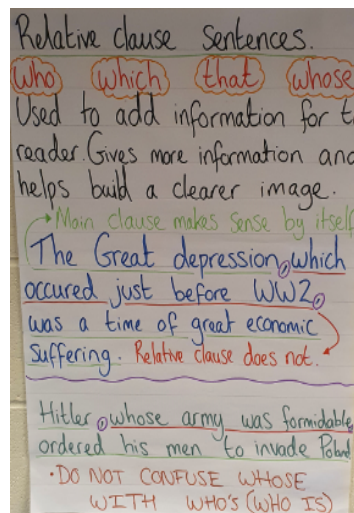 Relative clause sentences.
who which that whose
Used to add information for t
reader. Gives more information and
helps build a clearer image.
Main clause makes sense by itself
The Great depression, which
occured just before WW2,
was a time of great economic
suffering. Relative clause does not.
Hitler, whose army was formidable,
ordered his men to invade Poland
• DO NOT CONFUSE WHOSE
WITH WHO'S (WHO IS)